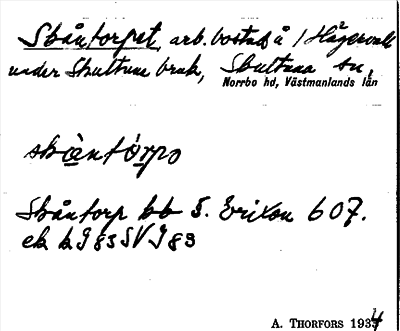 Skåntorpet, arb.bostad å 1 Hågervall
under Skultuna bruk, Skultuna sn,
Norrbo hd, Västmanlands län
skàntórpo
Skåntorp bb S. Erixon 607.
ek k J 83 SV J 83
A. THORFORS 1934